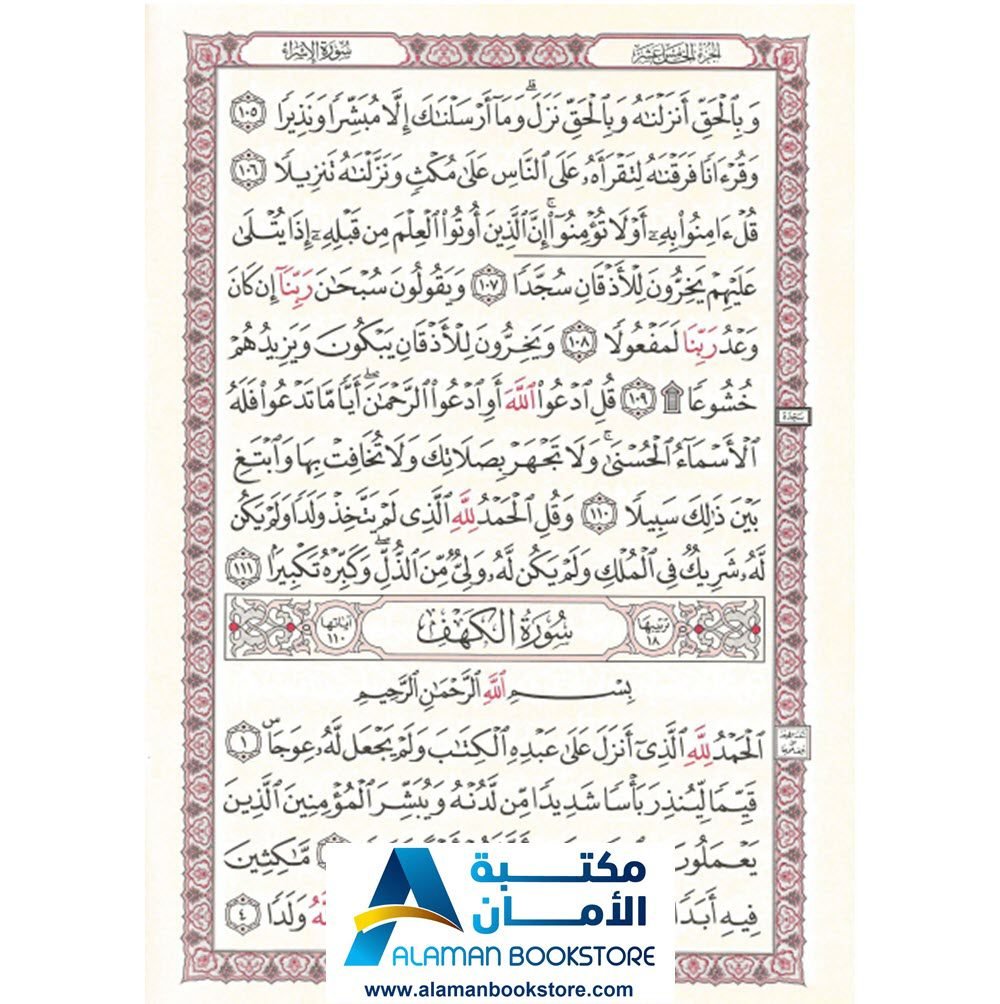 الجزء الخامس عشر
سورة الإسراء
وَبِٱلْحَقِّ أَنزَلْنَٰهُ وَبِٱلْحَقِّ نَزَلَ ۗ وَمَآ أَرْسَلْنَٰكَ إِلَّا مُبَشِّرًا وَنَذِيرًا ١٠٥
وَقُرْءَانًا فَرَقْنَٰهُ لِتَقْرَأَهُۥ عَلَى ٱلنَّاسِ عَلَىٰ مُكْثٍ وَنَزَّلْنَٰهُ تَنزِيلًا ١٠٦
قُلْ ءَامِنُوا۟ بِهِۦٓ أَوْ لَا تُؤْمِنُوٓا۟ ۚ إِنَّ ٱلَّذِينَ أُوتُوا۟ ٱلْعِلْمَ مِن قَبْلِهِۦٓ إِذَا يُتْلَىٰ
عَلَيْهِمْ يَخِرُّونَ لِلْأَذْقَانِ سُجَّدًا ١٠٧ وَيَقُولُونَ سُبْحَٰنَ رَبِّنَآ إِن كَانَ
وَعْدُ رَبِّنَا لَمَفْعُولًا ١٠٨ وَيَخِرُّونَ لِلْأَذْقَانِ يَبْكُونَ وَيَزِيدُهُمْ
خُشُوعًا ۩ ١٠٩ قُلِ ٱدْعُوا۟ ٱللَّهَ أَوِ ٱدْعُوا۟ ٱلرَّحْمَٰنَ ۖ أَيًّا مَّا تَدْعُوا۟ فَلَهُ
سجدة
ٱلْأَسْمَآءُ ٱلْحُسْنَىٰ ۚ وَلَا تَجْهَرْ بِصَلَاتِكَ وَلَا تُخَافِتْ بِهَا وَٱبْتَغِ
بَيْنَ ذَٰلِكَ سَبِيلًا ١١٠ وَقُلِ ٱلْحَمْدُ لِلَّهِ ٱلَّذِى لَمْ يَتَّخِذْ وَلَدًا وَلَمْ يَكُن
لَّهُۥ شَرِيكٌ فِى ٱلْمُلْكِ وَلَمْ يَكُن لَّهُۥ وَلِىٌّ مِّنَ ٱلذُّلِّ ۖ وَكَبِّرْهُ تَكْبِيرًۢا ١١١
ترتيبها ١٨
سُورَةُ الكَهْفِ
آياتها ١١٠
بِسْمِ ٱللَّهِ ٱلرَّحْمَٰنِ ٱلرَّحِيمِ
ٱلْحَمْدُ لِلَّهِ ٱلَّذِىٓ أَنزَلَ عَلَىٰ عَبْدِهِ ٱلْكِتَٰبَ وَلَمْ يَجْعَل لَّهُۥ عِوَجَا ۜ ١
قَيِّمًا لِّيُنذِرَ بَأْسًا شَدِيدًا مِّن لَّدُنْهُ وَيُبَشِّرَ ٱلْمُؤْمِنِينَ ٱلَّذِينَ
يَعْمَلُونَ مَّٰكِثِينَ
فِيهِ أَبَدًا وَلَدًا ٤
مكتبة
الأمان
ALAMAN BOOKSTORE
www.alamanbookstore.com